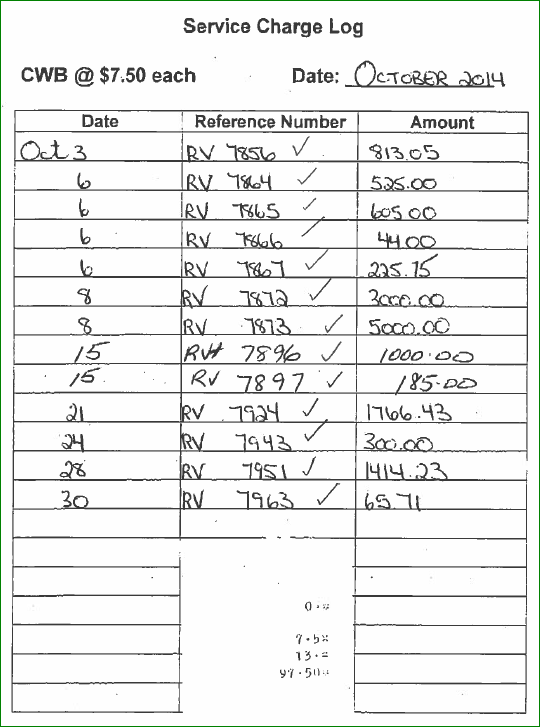 Service Charge Log
CWB @ $7.50 each Date: OCTOBER 2014
Date Reference Number Amount
Oct 3 RV 7856 ✓ 813.05
6 RV 7864 ✓ 525.00
6 RV 7865 ✓ 605.00
6 RV 7866 ✓ 44.00
6 RV 7867 ✓ 225.75
8 RV 7872 ✓ 3000.00
8 RV 7873 ✓ 5000.00
15 RV 7896 ✓ 1000.00
15 RV 7897 ✓ 185.00
21 RV 7924 ✓ 1766.43
24 RV 7943 ✓ 300.00
28 RV 7951 ✓ 1414.23
30 RV 7963 ✓ 65.71
0.*
7.5x
13.=
97.50*